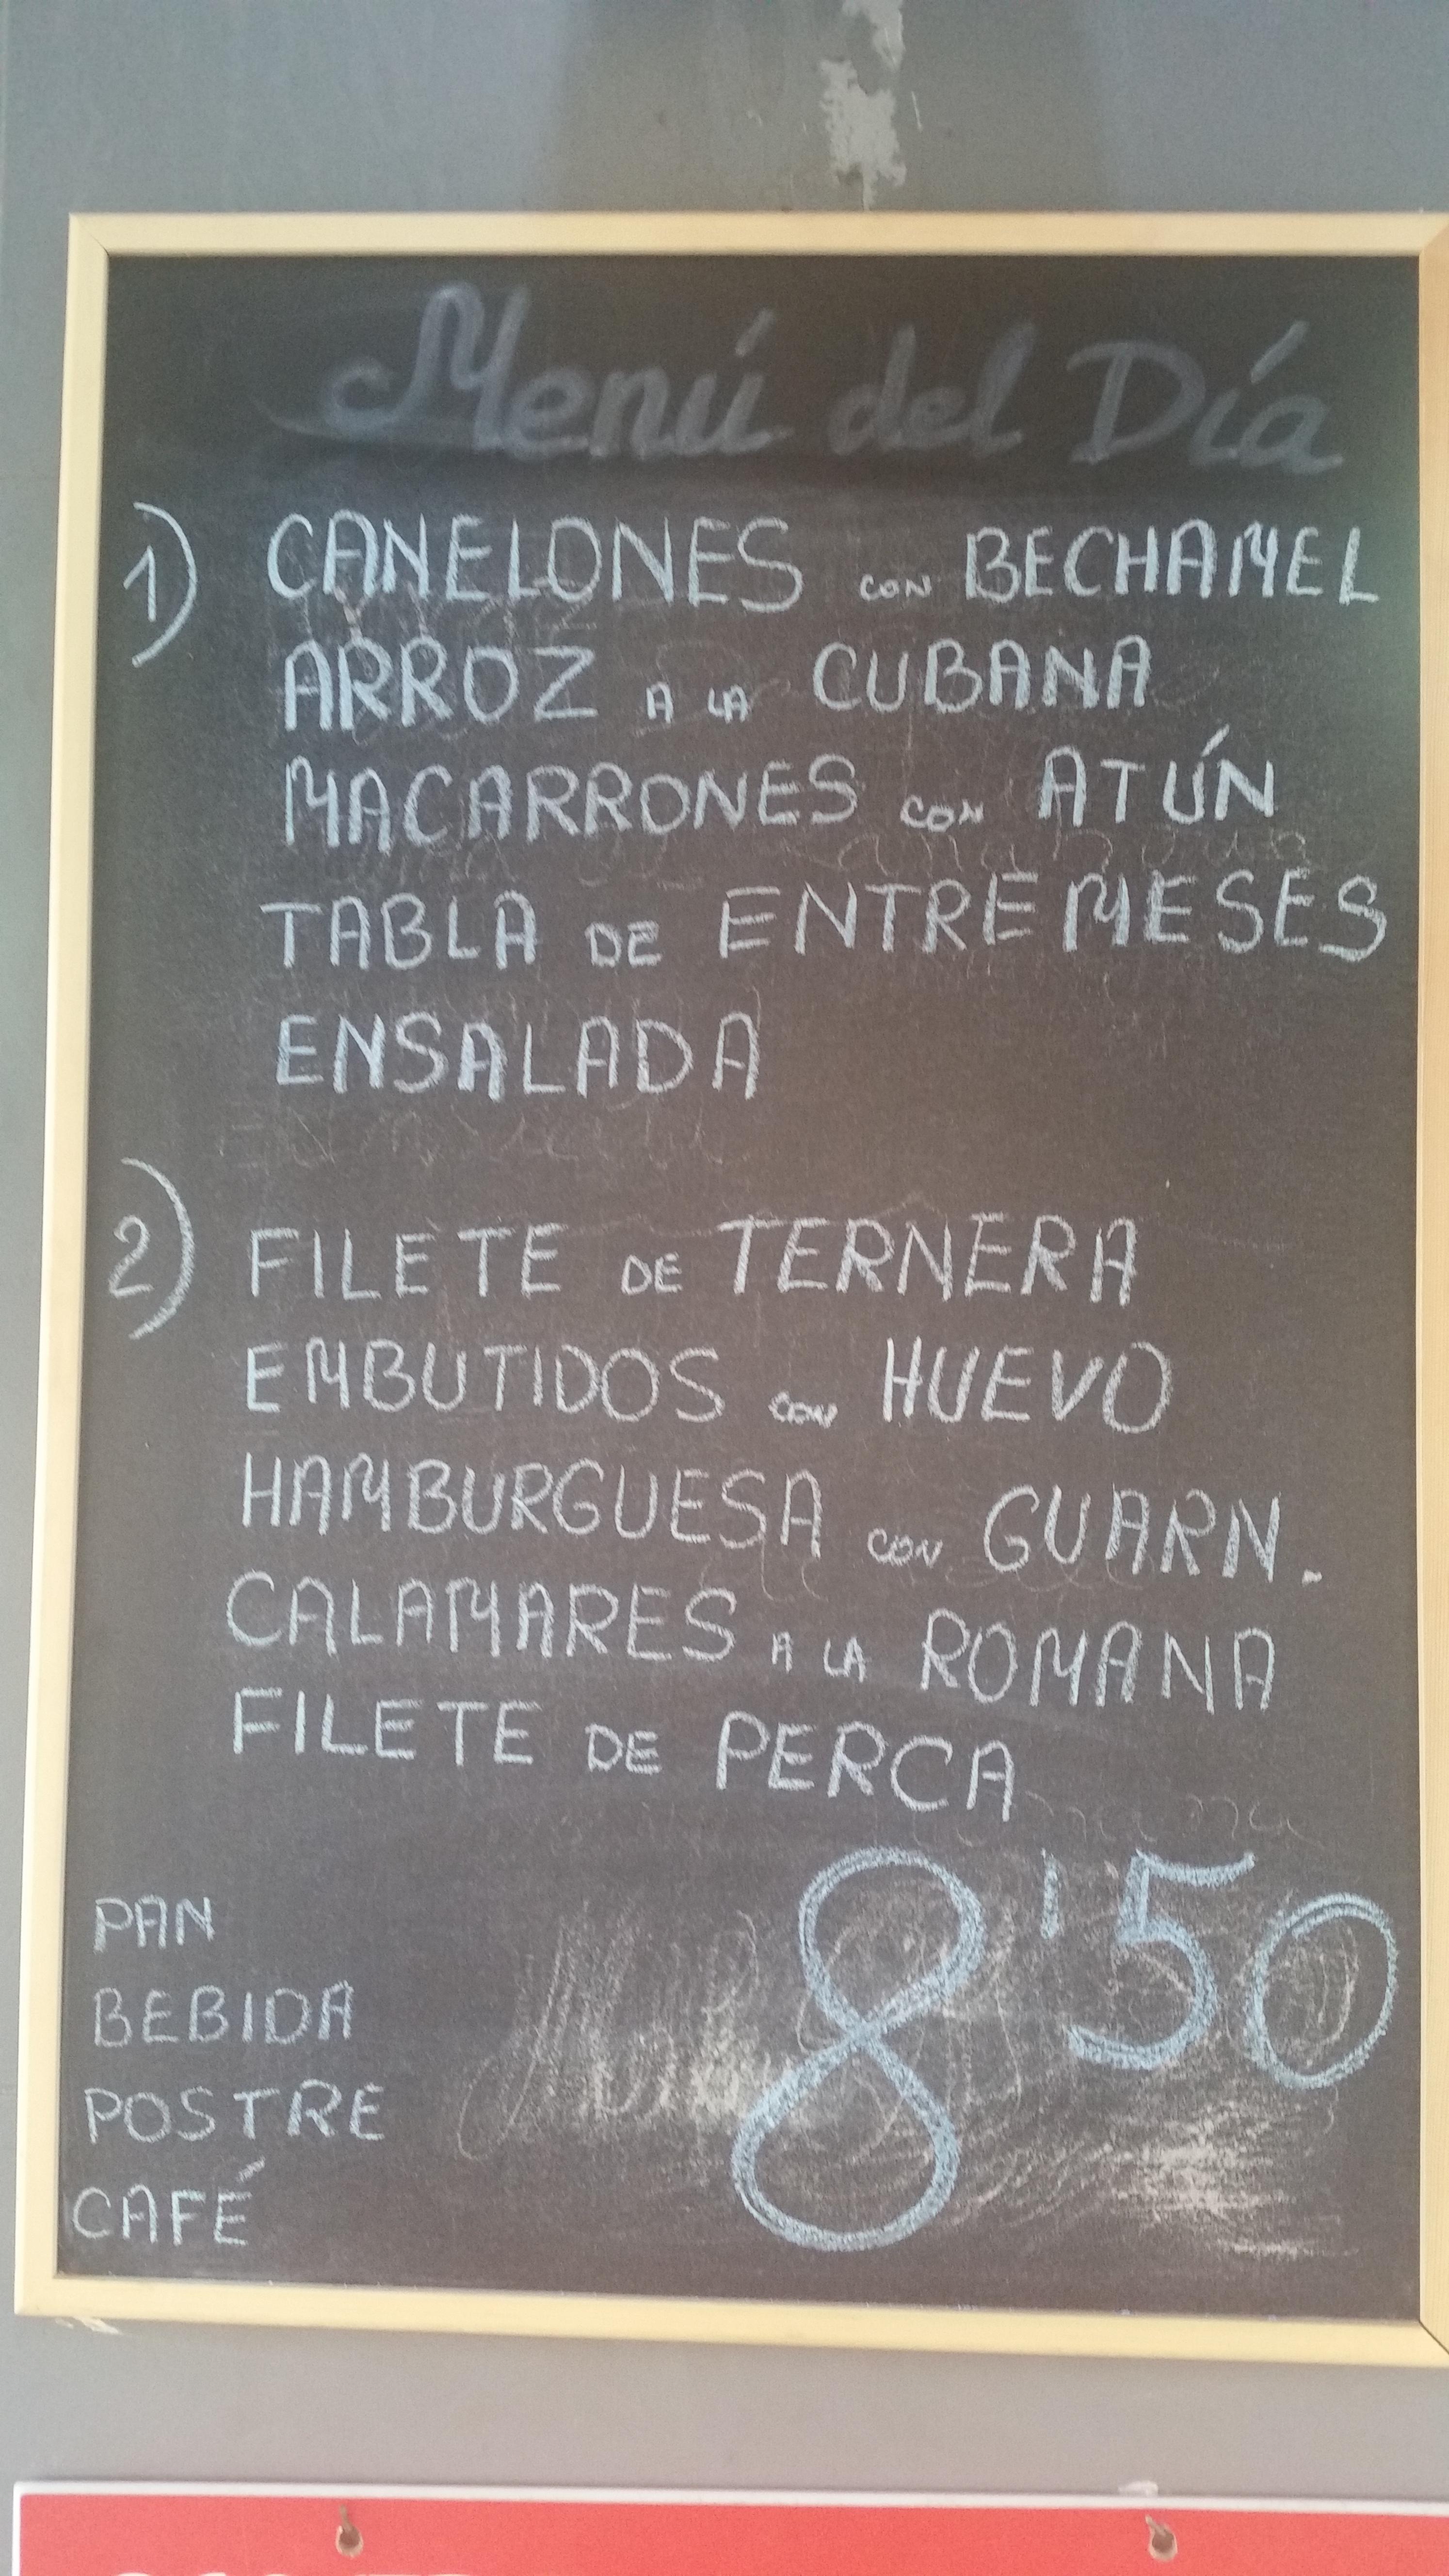 Menú del Día
1) CANELONES CON BECHAMEL
ARROZ A LA CUBANA
MACARRONES CON ATÚN
TABLA DE ENTREMESES
ENSALADA
2) FILETE DE TERNERA
EMBUTIDOS CON HUEVO
HAMBURGUESA CON GUARN.
CALAMARES A LA ROMANA
FILETE DE PERCA
8'50
PAN
BEBIDA
POSTRE
CAFÉ